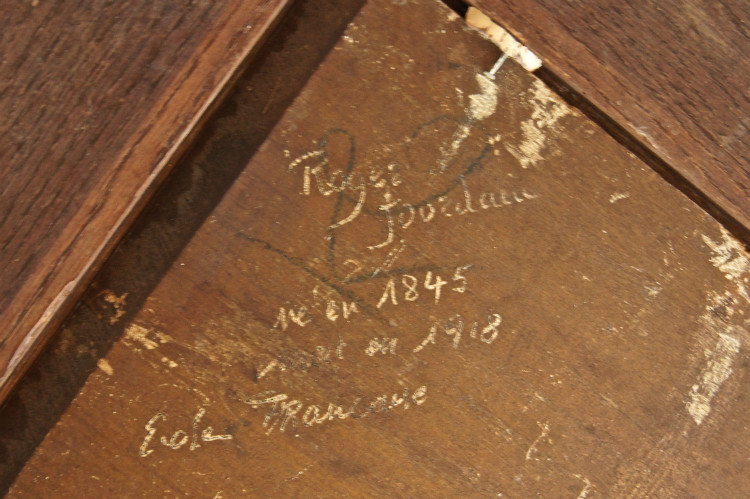 Roger
Jourdain
né en 1845
mort en 1918
Ecole Française